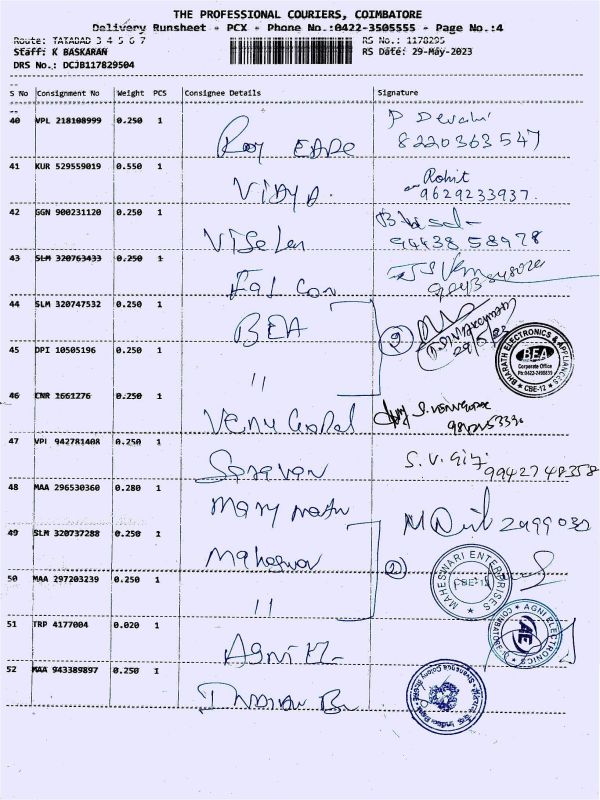 THE PROFESSIONAL COURIERS, COIMBATORE
Delivery Runsheet - PCX - Phone No.:0422-3505555 - Page No.:4
Route: TATABAD 3 4 5 6 7 RS No.: 1178295
Staff: K BASKARAN RS Date: 29-May-2023
DRS No.: DCJB117829504
S No Consignment No Weight PCS Consignee Details Signature
40 VPL 218108999 0.250 1 P Devaki
8220363547
41 KUR 529559019 0.550 1 Vidya. Rohit
9629233937.
42 GGN 900231120 0.250 1
94438 58978
43 SLM 320763433 0.250 1 Falcon
44 SLM 320747532 0.250 1 BEA 2
BHARATH ELECTRONICS & APPLIANCES
BEA
Corporate Office
CBE-12
45 DPI 10505196 0.250 1 "
46 CNR 1661276 0.250 1 Venu Gopal S. VENUGOPAL
47 VPI 942781408 0.250 1 Saravan S. V. Giri
9942748358
48 MAA 296530360 0.280 1 Mary
49 SLM 320737288 0.250 1 Maheswar 2
MAHESWARI ENTERPRISES
CBE-12
50 MAA 297203239 0.250 1 "
51 TRP 4177004 0.020 1 Agni
AGNI ELECTRONICS
AE
COIMBATORE
52 MAA 943389897 0.250 1 Indian